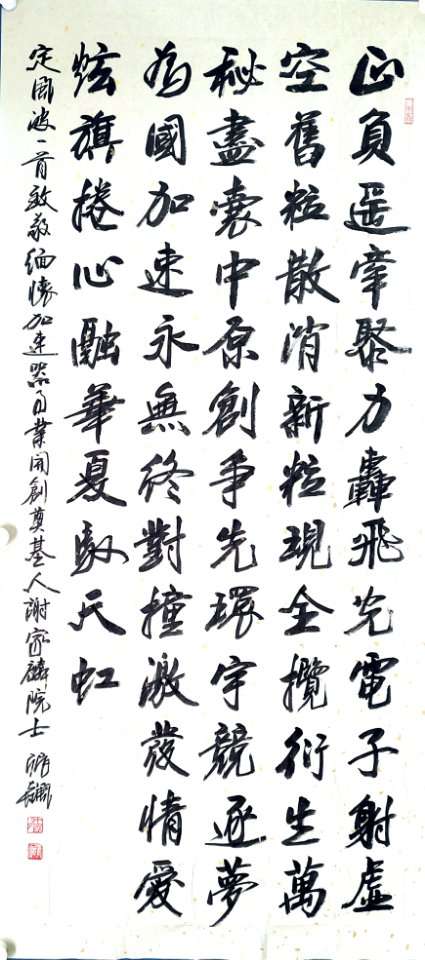 正負遥牽聚力轟飛光電子射虛
空舊粒散消新粒現全攬衍生萬
秘盡囊中原創爭先環宇競逐夢
為國加速永無終對撞激發情愛
炫旗捲心融華夏馭天虹
定風波一首致敬緬懷加速器事業開創奠基人謝家麟院士